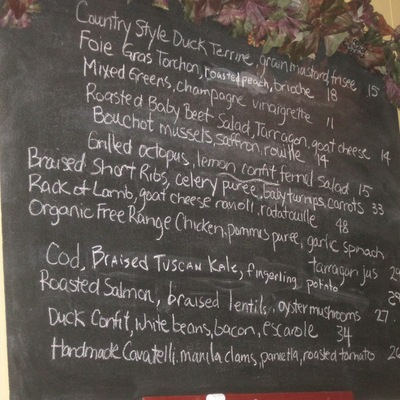 Country Style Duck Terrine, grain mustard, frisee 15
Foie Gras Torchon, roasted peach, brioche 18
Mixed Greens, champagne vinaigrette 11
Roasted Baby Beet Salad, Tarragon, goat cheese 14
Bouchot mussels, saffron, rouille 14
Grilled octopus, lemon confit, fennel Salad 15
Braised Short Ribs, celery puree, baby turnips, carrots 33
Rack of Lamb, goat cheese ravioli, ratatouille 48
Organic Free Range Chicken, pommes puree, garlic spinach
tarragon jus 29
Cod, Braised Tuscan Kale, fingerling potato
Roasted Salmon, braised lentils, oyster mushrooms 27
Duck Confit, white beans, bacon, escarole 34
Handmade Cavatelli, manila clams, pancetta, roasted tomato 26